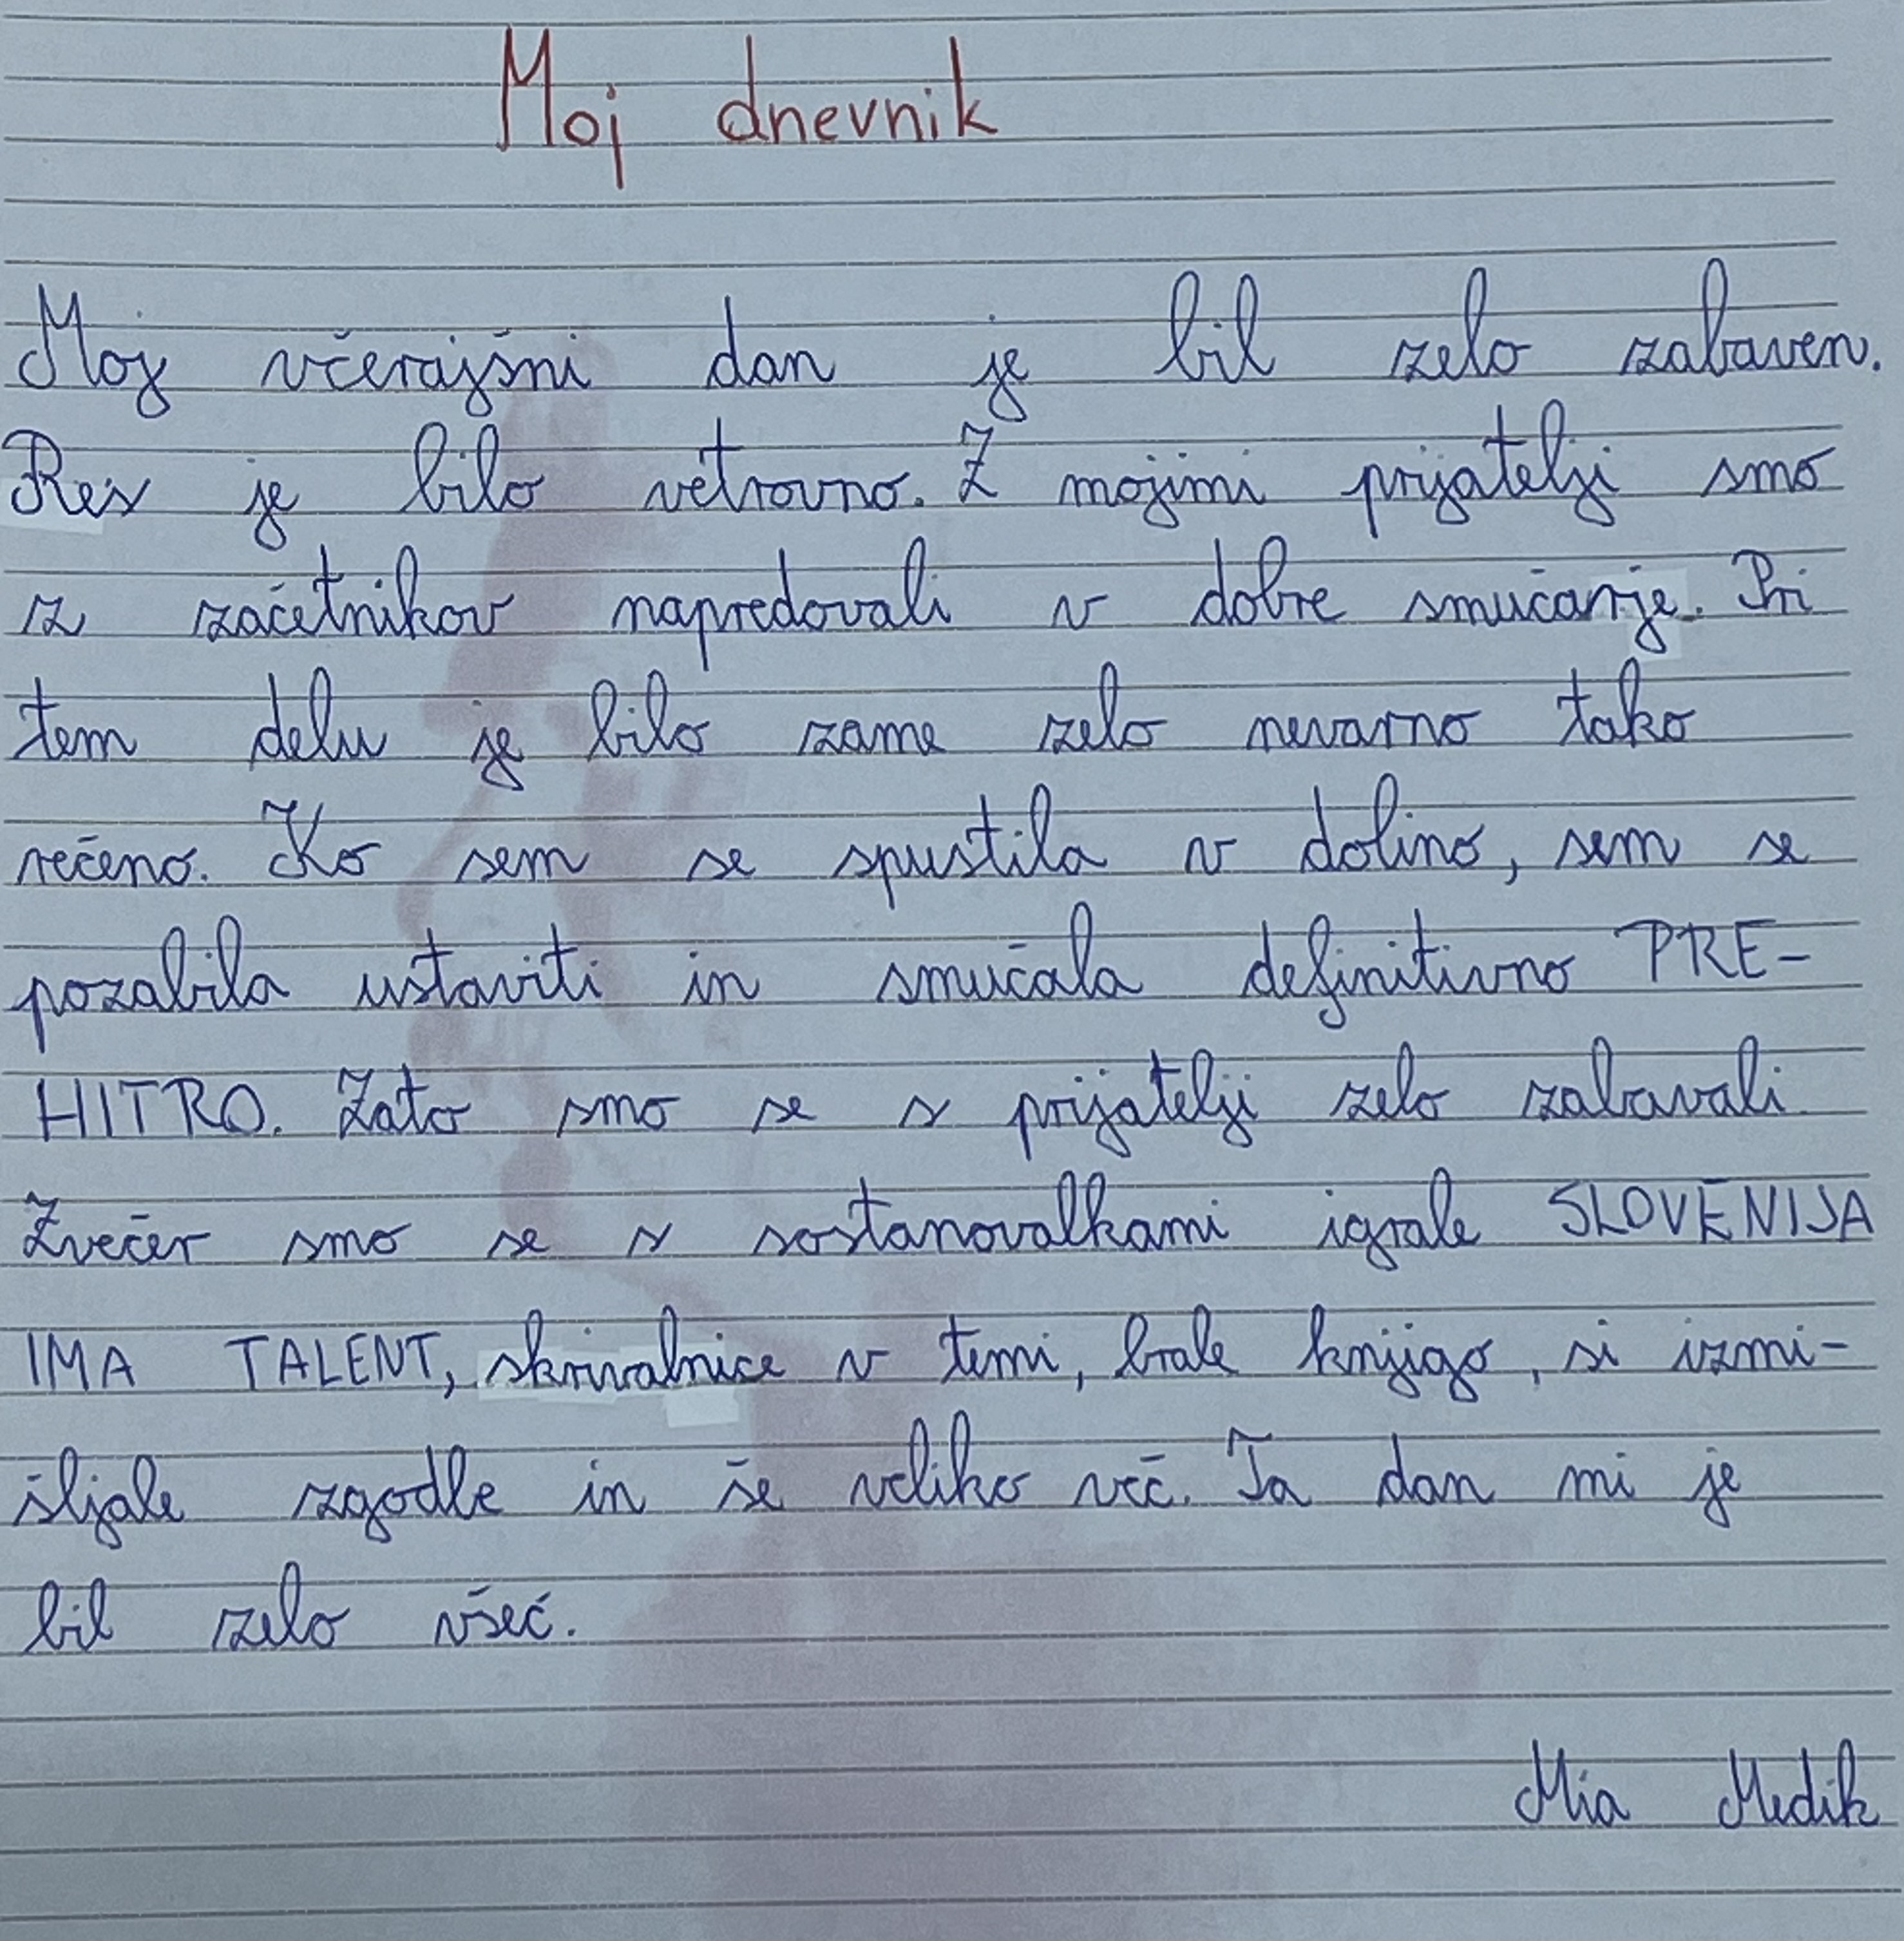 Moj dnevnik
Moj včerajšni dan je bil zelo zabaven.
Res je bilo vetrovno. Z mojimi prijatelji smo
iz začetnikov napredovali v dobre smučanje. Pri
tem delu je bilo zame zelo nevarno tako
rečeno. Ko sem se spustila v dolino, sem se
pozabila ustaviti in smučala definitivno PRE-
HITRO. Zato smo se s prijatelji zelo zabavali
Zvečer smo se s sostanovalkami igrale SLOVENIJA
IMA TALENT, skrivalnice v temi, brale knjigo, si izmi-
šljale zgodle in še veliko več. Ta dan mi je
bil zelo všeč.
Mia Medik